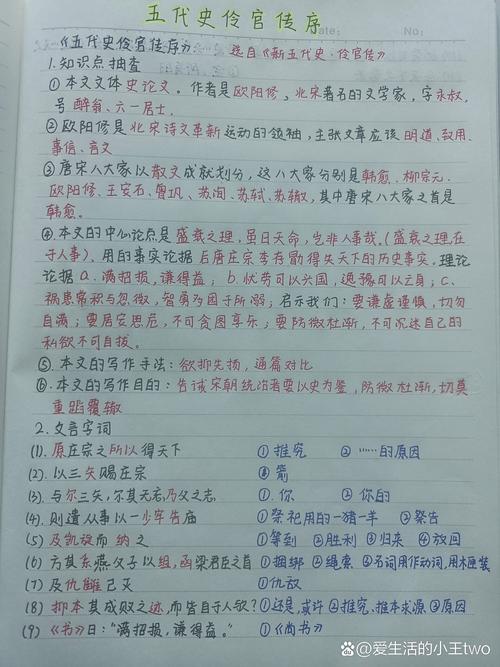 五代史伶官传序
Date:
No:
《五代史伶官传序》: 选自《新五代史·伶官传》
1.知识点抽查
①本文文体史论文。作者是欧阳修,北宋著名的文学家,字永叔,
号醉翁、六一居士。
②欧阳修是北宋诗文革新运动的领袖,主张文章应该明道、致用、
事信、言文
③唐宋八大家以散文成就划分,这八大家分别是韩愈、柳宗元、
欧阳修、王安石、曾巩、苏洵、苏轼、苏辙,其中唐宋八大家之首是
韩愈。
④本文的中心论点是盛衰之理,虽曰天命,岂非人事哉。(盛衰之理,在
于人事)。用的事实论据后唐庄宗李存勖得失天下的历史事实,理论
论据a.满招损,谦得益;b.忧劳可以兴国,逸豫可以亡身;c.
祸患常积与忽微,智勇多困于所溺;启示我们:要谦虚谨慎,切勿
自满;要居安思危,不可贪图享乐;要防微杜渐,不可沉迷自己的
私欲不可自拔。
⑤.本文的写作手法:欲抑先扬,通篇对比
⑥.本文的写作目的:告诫宋朝统治者要以史为鉴,防微杜渐,切莫
重蹈覆辙
2.文言字词
(1).原庄宗之所以得天下 ①推究 ②……的原因
(2).以三矢赐庄宗 ①箭
(3).与尔三矢,尔其无忘乃父之志 ①.你 ②你的
(4).则遣从事以一少牢告庙 ①祭祀用的一猪一羊 ②祭告
(5).及凯旋而纳之 ①等到 ②胜利 ③归来 ④放回
(6).方其系燕父子以组,函梁君臣之首 ①捆绑 ②绳索 ③名词用作动词,用木匣装
(7).及仇雠已灭 ①仇敌
(8).抑本其成败之迹,而皆自于人欤? ①还是,或许 ②推究、推本求源 ③原因
(9).《书》曰:"满招损,谦得益。" ①《尚书》
@爱生活的小王two